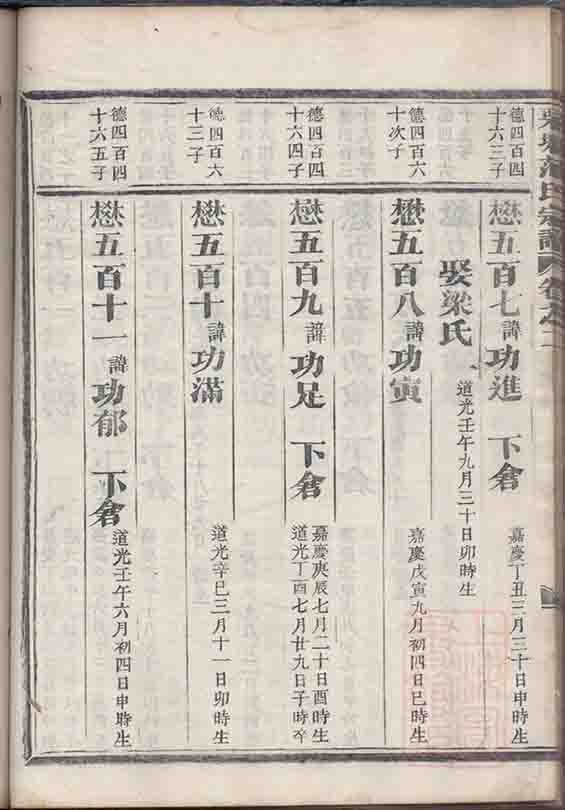 氏宗譜
卷之二
德四百四
十六三子
懋五百七諱功進 下倉
嘉慶丁丑三月三十日申時生
娶梁氏
道光壬午九月三十日卯時生
德四百六
十次子
懋五百八諱功寅
嘉慶戊寅九月初四日巳時生
德四百四
十六四子
懋五百九諱功足 下倉
嘉慶庚辰七月二十日酉時生
道光丁酉七月廿九日子時卒
德四百六
十三子
懋五百十諱功滿
道光辛巳三月十一日卯時生
德四百四
十六五子
懋五百十一諱功郁 下倉
道光壬午六月初四日申時生